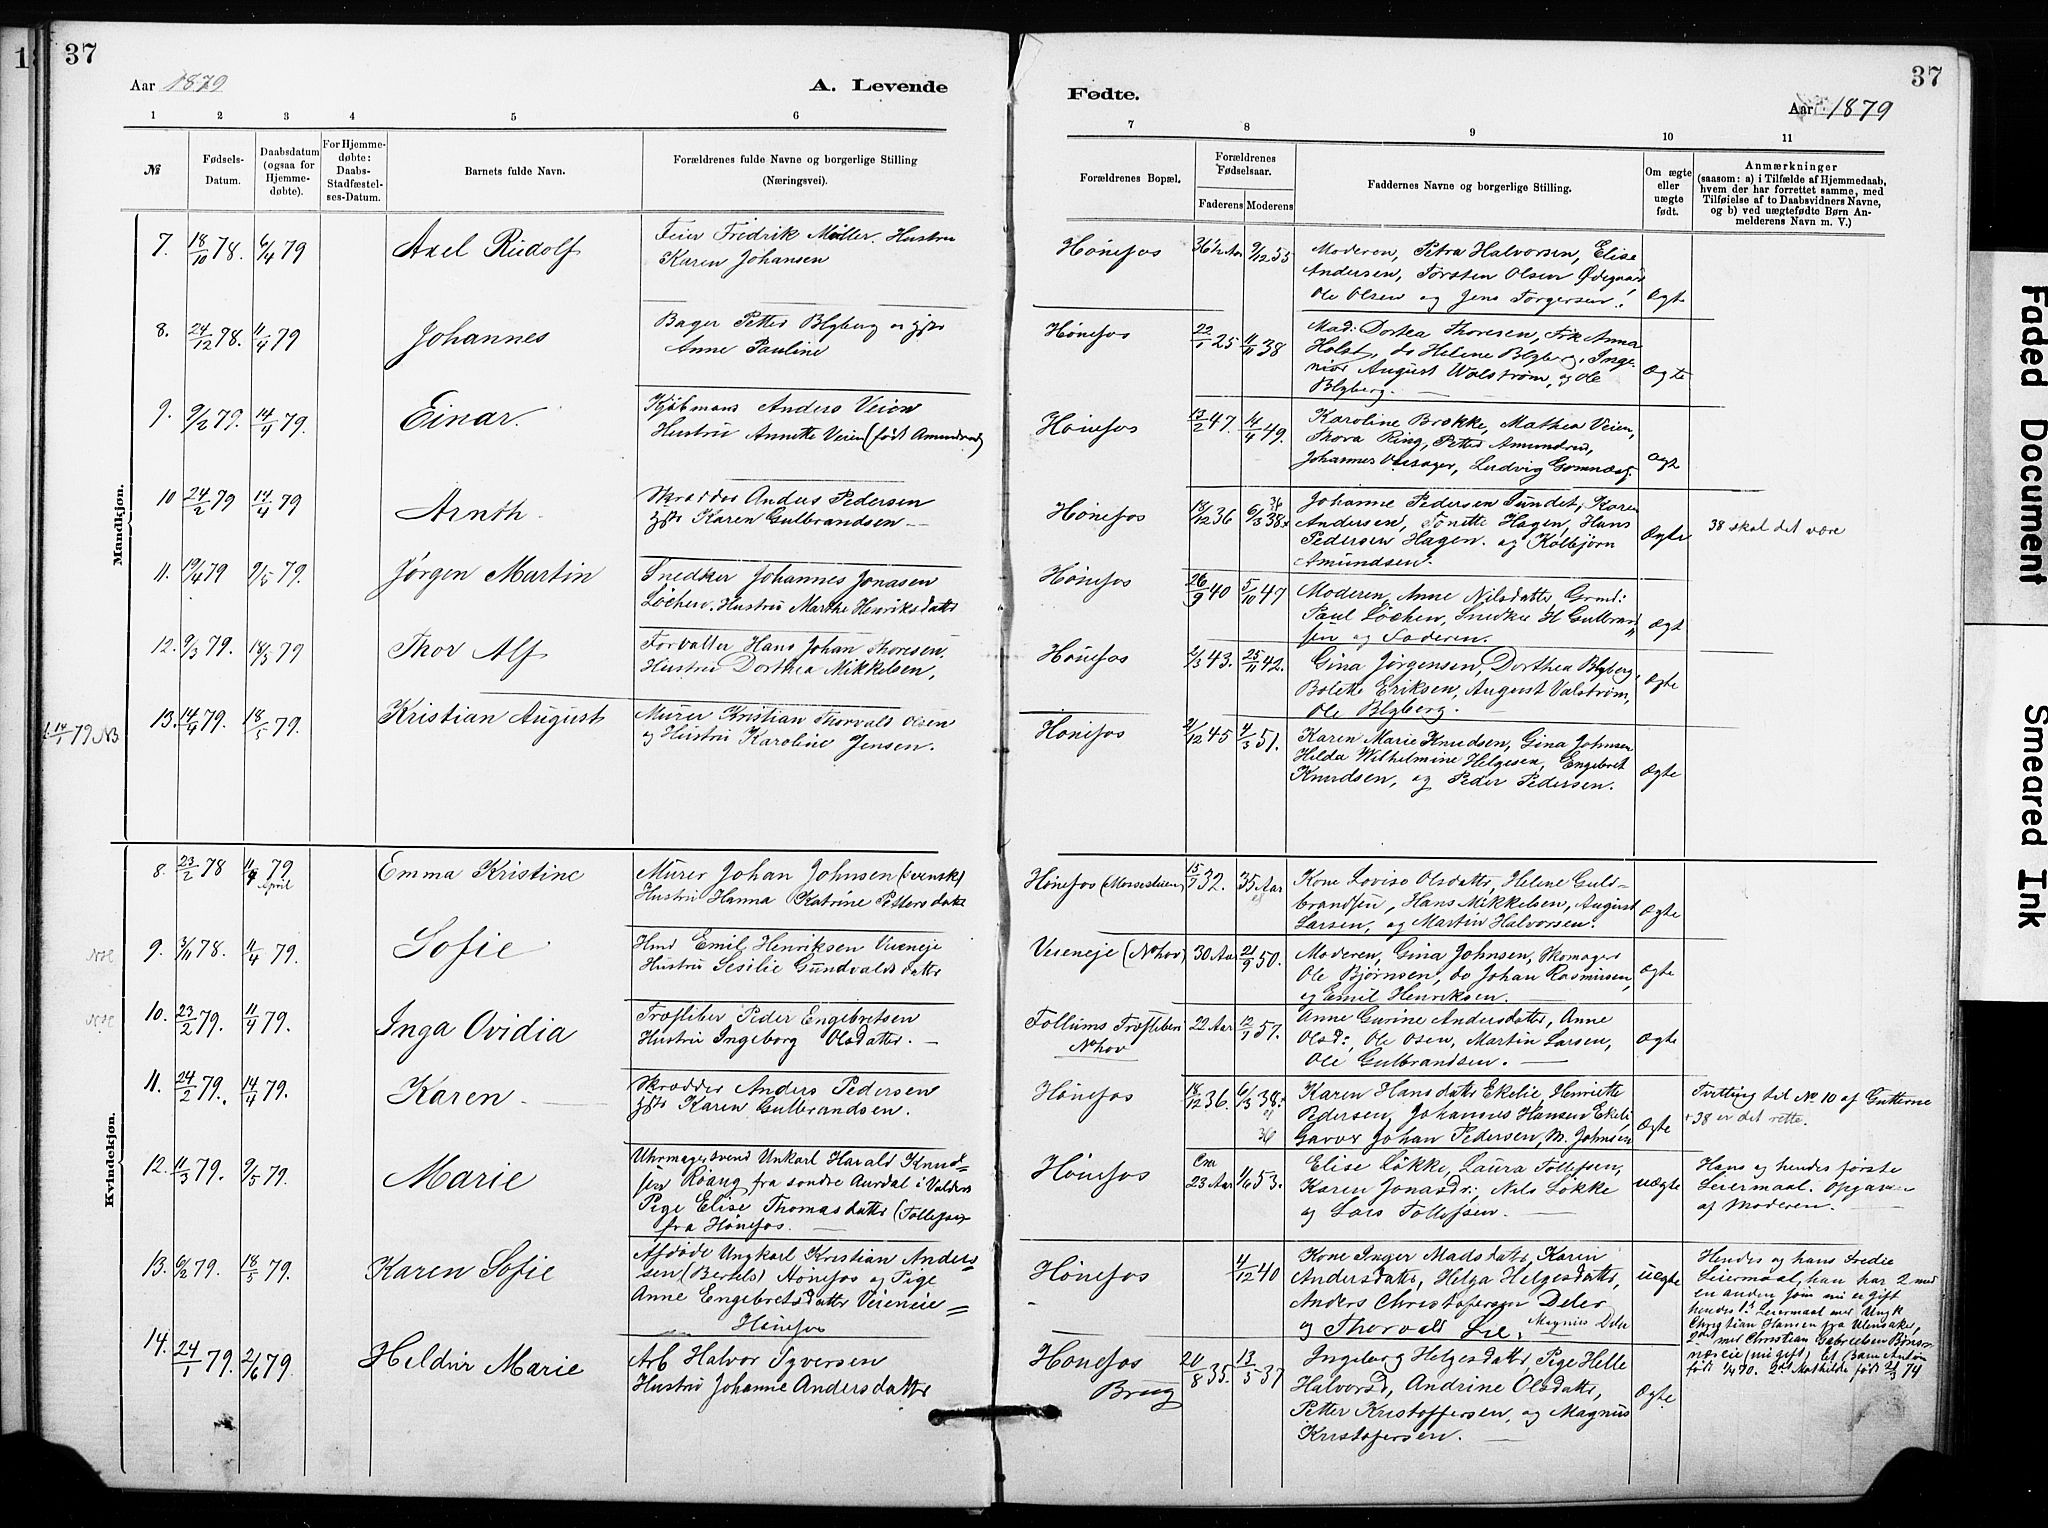 37
Aar 1879
A. Levende
1 2 3 4 5 6
№
Fødsels-Datum.
Daabsdatum (ogsaa for Hjemme-døbte).
For Hjemme-døbte: Daabs-Stadfæstel-ses-Datum.
Barnets fulde Navn.
Forældrenes fulde Navne og borgerlige Stilling
(Næringsvei).
Mandkjøn.
7. 18/10 78. 6/4 79 Axel Rudolf
Feier Fredrik Møller. Hustru
Karen Johansen
8. 24/12 78. 11/4 79 Johannes
Bager Petter Blyberg og
Anne Pauline
9. 9/2 79. 14/4 79. Einar.
Kjøbmand Anders Veien
Hustru Annette Veien (født Amundrud)
10 24/2 79 14/4 79 Arnth.
Skrædder Anders Pedersen
Karen Gulbrandsen
11. 19/4 79 9/5 79. Jørgen Martin
Snedker Johannes Jonasen
Løchen. Hustru Marthe Henriksdatter
12. 9/3 79. 18/5 79 Thor Alf
Forvalter Hans Johan Thoresen.
Hustru Dorthea Mikkelsen,
13. 14/4 79. 18/5 79. Kristian August
Murer Kristian Thorvald Olsen
og Hustru Karoline Jensen.
Kvindekjøn.
8. 23/2 78 11/4 79 April Emma Kristine
Murer Johan Johnsen (svensk)
Hustru Hanna Katrine Pettersdatter
9. 3/11 78. 11/4 79. Sofie
Hmd Emil Henriksen Veieneje
Hustru Sesilie Gundvaldsdatter
10. 23/2 79. 11/4 79. Inga Ovidia
Træsliber Peder Engebretsen
Hustru Ingeborg Olsdatter.
11. 24/2 79. 14/4 79. Karen
Skrædder Anders Pedersen
Karen Gulbrandsen.
12. 11/3 79. 9/5 79. Marie
Uhrmagersvend Unkarl Harald Knud-
sen Roang fra sondre Aurdal i Valders
Pige Elise Thomasdatter (Tollefsen
fra Hønefos.
13. 6/2 79. 18/5 79. Karen Sofie
Afdøde Ungkarl Kristian Anders-
sen (Bertels) Hønefos og Pige
Anne Engebretsdatter Veieneie
Hønefos
14. 24/1 79. 2/6 79 Heldur Marie
Arb Halvor Syversen
Hustru Johanne Andersdatter
Fødte.
37
Aar 1879
7 8 9 10 11
Forældrenes Bopæl.
Forældrenes Fødselsaar.
Faderens Moderens
Faddernes Navne og borgerlige Stilling.
Om ægte eller uægte født.
Anmærkninger
(saasom: a) i Tilfælde af Hjemmedaab,
hvem der har forrettet samme, med
Tilføielse af to Daabsvidners Navne,
og b) ved uægtefødte Børn An-
melderens Navn m. V.)
Hønefos 9/12 55
Moderen, Petra Halvorsen, Elise
Andersen, Torsten Olsen Ødegaard
Ole Olsen og Jens Torgersen. ægt
Hønefos 22/1 25 11/11 38
Mad: Dortea Thoresen, Frk Anna
Holst, do Helene Blyberg, Inge-
niør August Walstrøm, og Ole
Blyberg. ægte
Hønefos 13/2 47. 14/4 49.
Karoline Brokke, Mathea Veien,
Thora Ring, Petter Amundrud,
Johannes Olesager, Ludvig Gomnæs. ægte
Hønefos 18/12 36 6/3 38 36
Johanne Pedersen Sundet, Karen
Andersen, Tonette Hagen, Hans
Pedersen Hagen. og Kolbjørn
Amundsen. ægte
38 skal det være
Hønefos 26/9 40 5/10 47
Moderen, Anne Nilsdatter Grond:
Paul Løchen, Snedker H Gulbrand
sen og Faderen. ægt
Hønefos 2/3 43. 25/11 42.
Gina Jørgensen, Dorthea Blyberg,
Bolette Eriksen, August Valstrøm,
Ole Blyberg. ægte
Hønefos 2/12 45 4/3 51.
Karen Marie Knudsen, Gina Johnsen
Hilda Wilhelmine Helgesen, Engebret
Knudsen, og Peder Pedersen. ægte
Hønefos 15/9 32. 35 Aar
Kone Lovise Olsdatter, Helene Guld-
brandsen, Hans Mikkelsen, August
Larsen, og Martin Halvorsen. ægte
Veieneje (Nohov) 30 Aar 21/9 50.
Moderen, Gina Johnsen, Skomager
Ole Bjørnsen, do Johan Rasmusen,
og Emil Henriksen. ægte
Follums Træsliberi
Nohov
22 Aar 12/9 57.
Anne Gurine Andersdatter, Anne
Olsd:, Ole Osen, Martin Larsen,
Ole Gulbrandsen. ægte
Hønefos 18/12 36. 6/3 38. 36
Karen Hansdatter Ekelie, Henriette
Pedersen, Johannes Hansen Ekeli,
Garver Johan Pedersen, M. Johnsen ægte
Tvilling til No 10 af Gutterne
38 er det rette.
Hønefos Cra 23 Aar 11/6 53.
Elise Løkke, Laura Tollefsen,
Karen Jonasdr:, Nils Løkke
og Lars Tollefsen. uægte
Hans og hendes første
Leiermaal. Opgaven
af Moderen.
Hønefos 4/12 40
Kone Inger Madsdatter, Karen
Andersdatter, Helga Helgesdatter,
Anders Christofersen Deler
og Thorvald Lie, Magnus Deler uægte
Hendes og hans tredie
Leiermaal, han har 2 med
en anden som nu er gift
hendes 1st Leiermaal med Ungk
Christian Hansen fra Ulensaker,
2det med Christian Gabrielsen
(nu gift) Et Barn Anton
født 1/4 70. 2det Mathilde født 74
Hønefos
Brug
20/8 35. 13/5 37
Ingeborg Helgesdatter, Pige Helle
Halvorsd, Andrine Olsdatter,
Petter Kristoffersen, og Magnus
Kristofersen. ægte
Faded Document
Smeared Ink